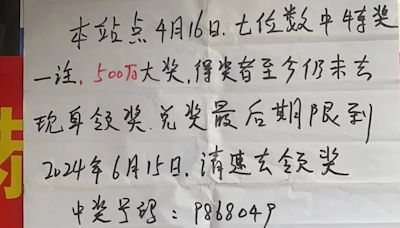 本站点4月16日.七位数中特奖
一注,500万大奖,得奖者至今仍未去
现身领奖.兑奖最后期限到
2024年6月15日.请速去领奖
中奖号码：9868049